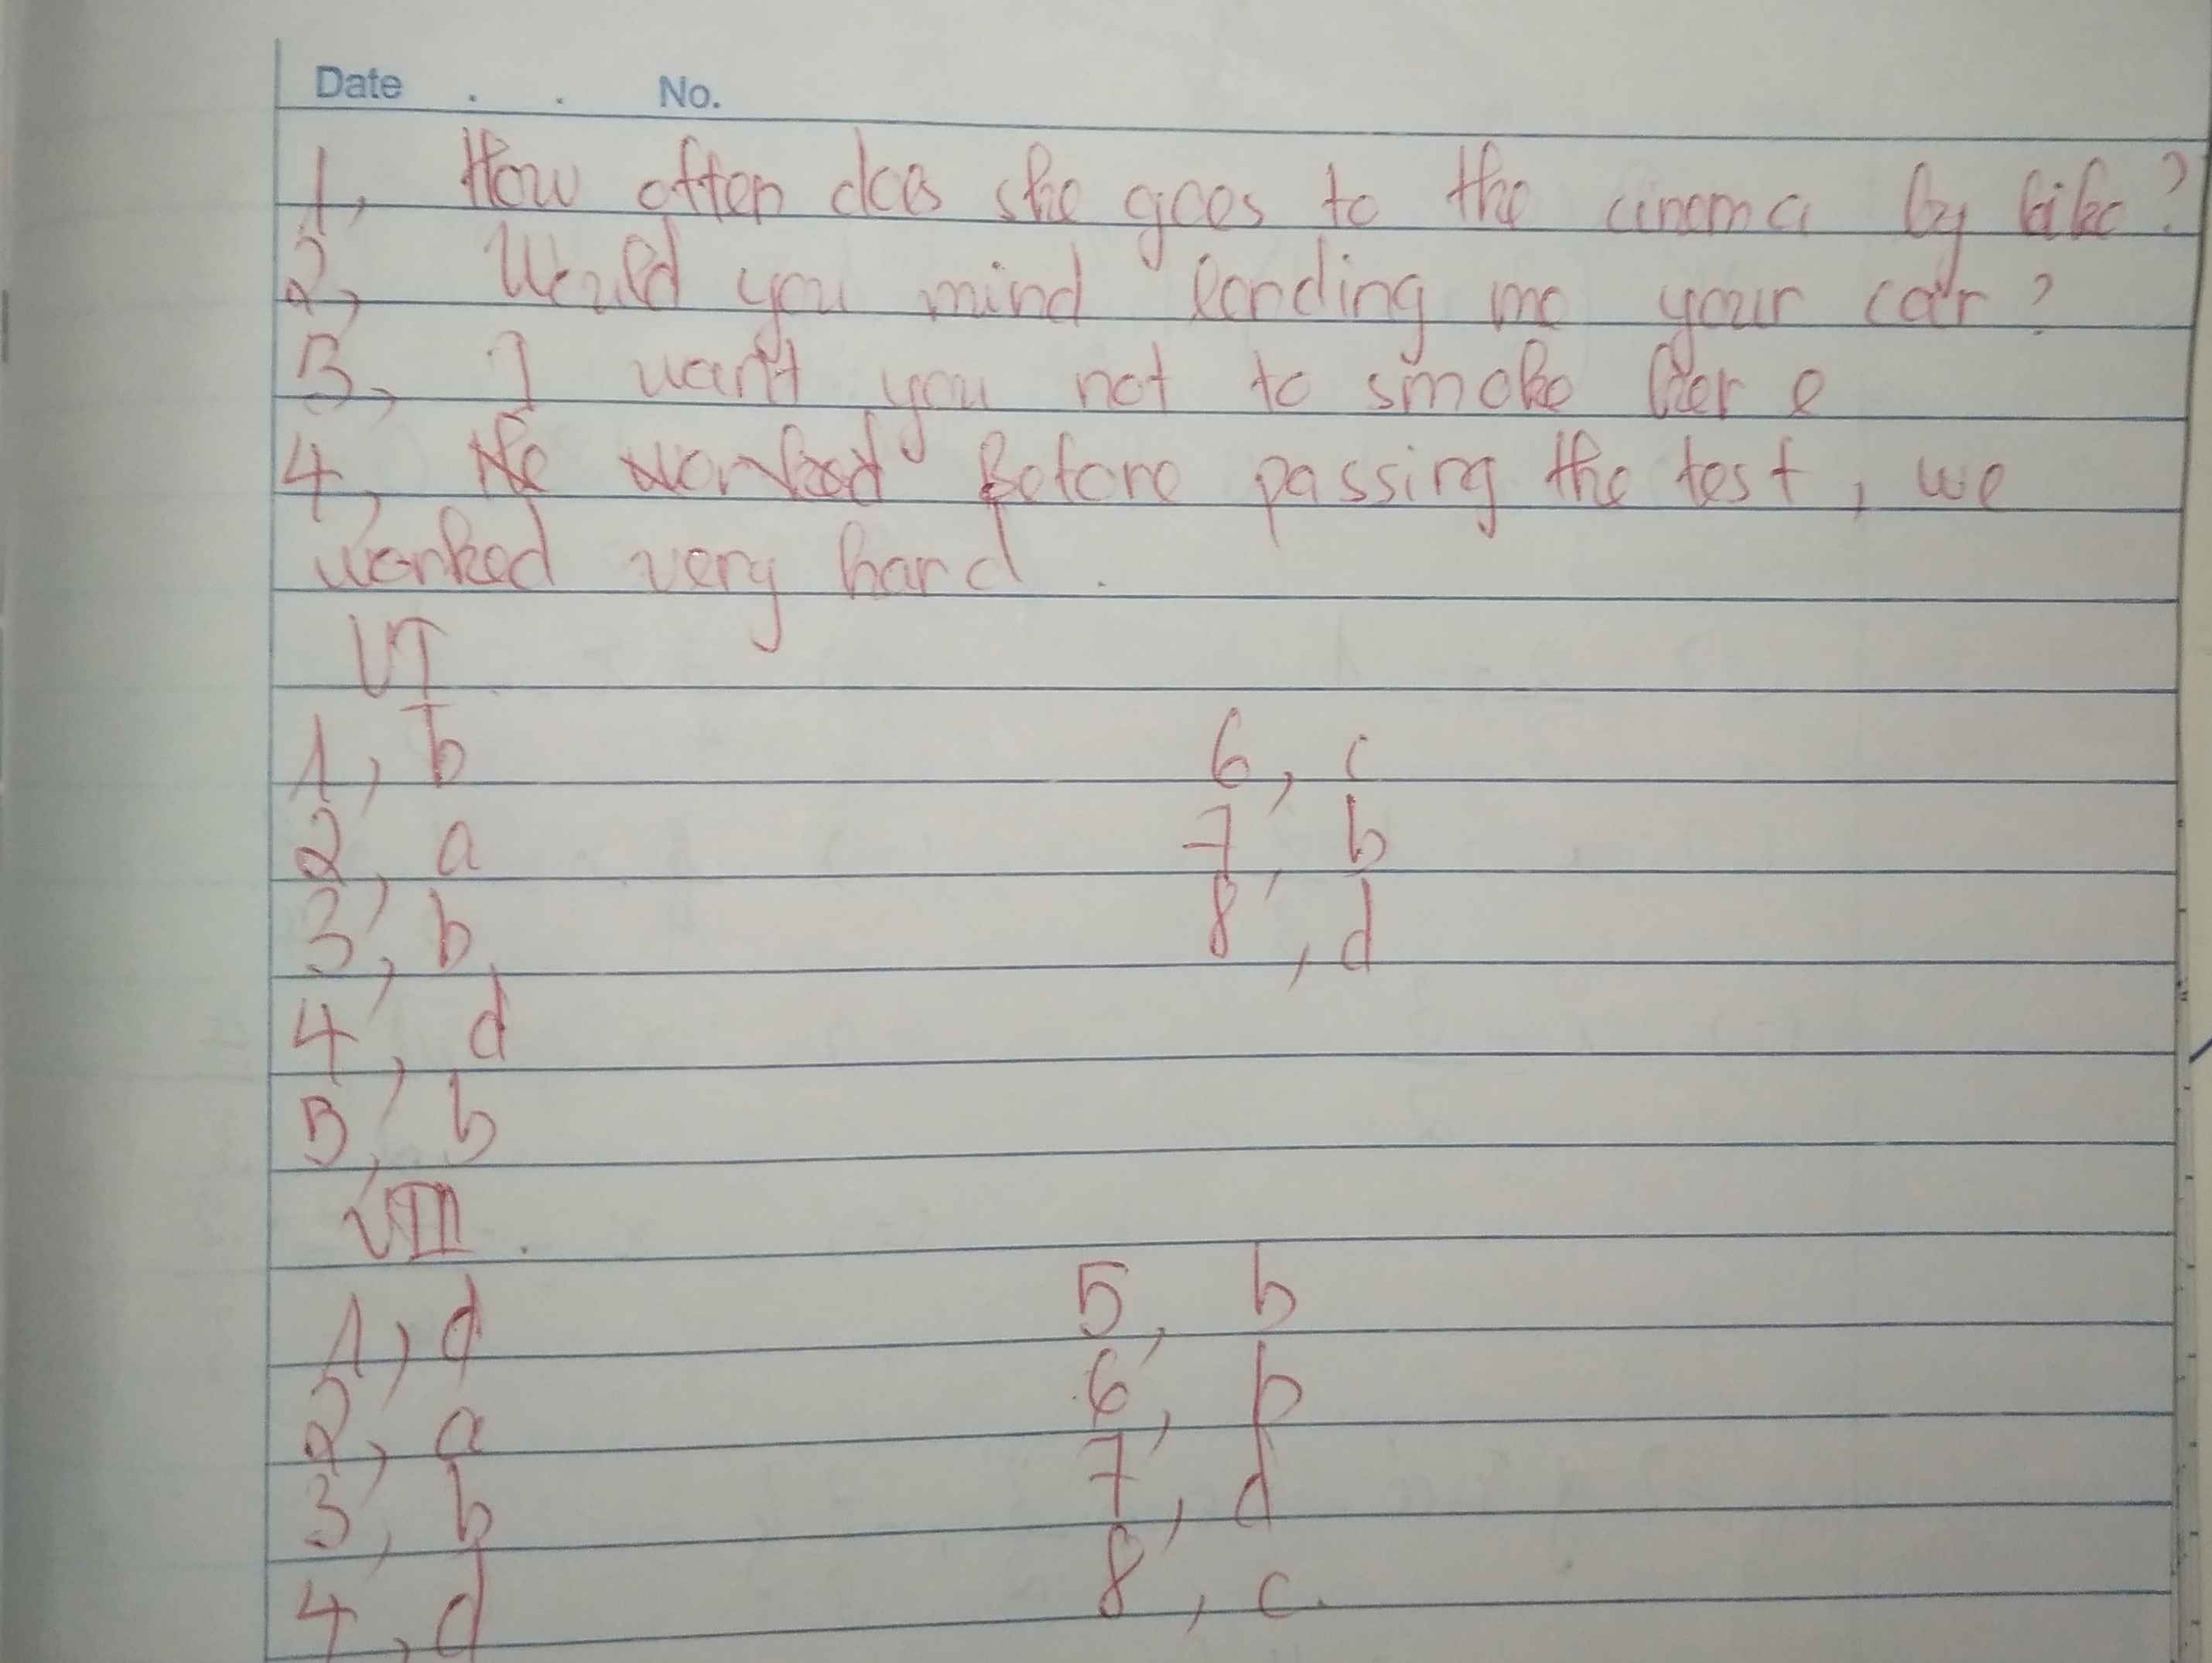 Date . . No.
1, How often does she goes to the cinema by bike?
2, Would you mind lending me your car?
3, I want you not to smoke here
4, We worked Before passing the test, we
worked very hard.
VI
1, b 6, c
2, a 7, b
3, b 8, d
4, d
5, b
VIII.
1, d 5, b
2, a 6, b
3, b 7, d
4, d 8, c.